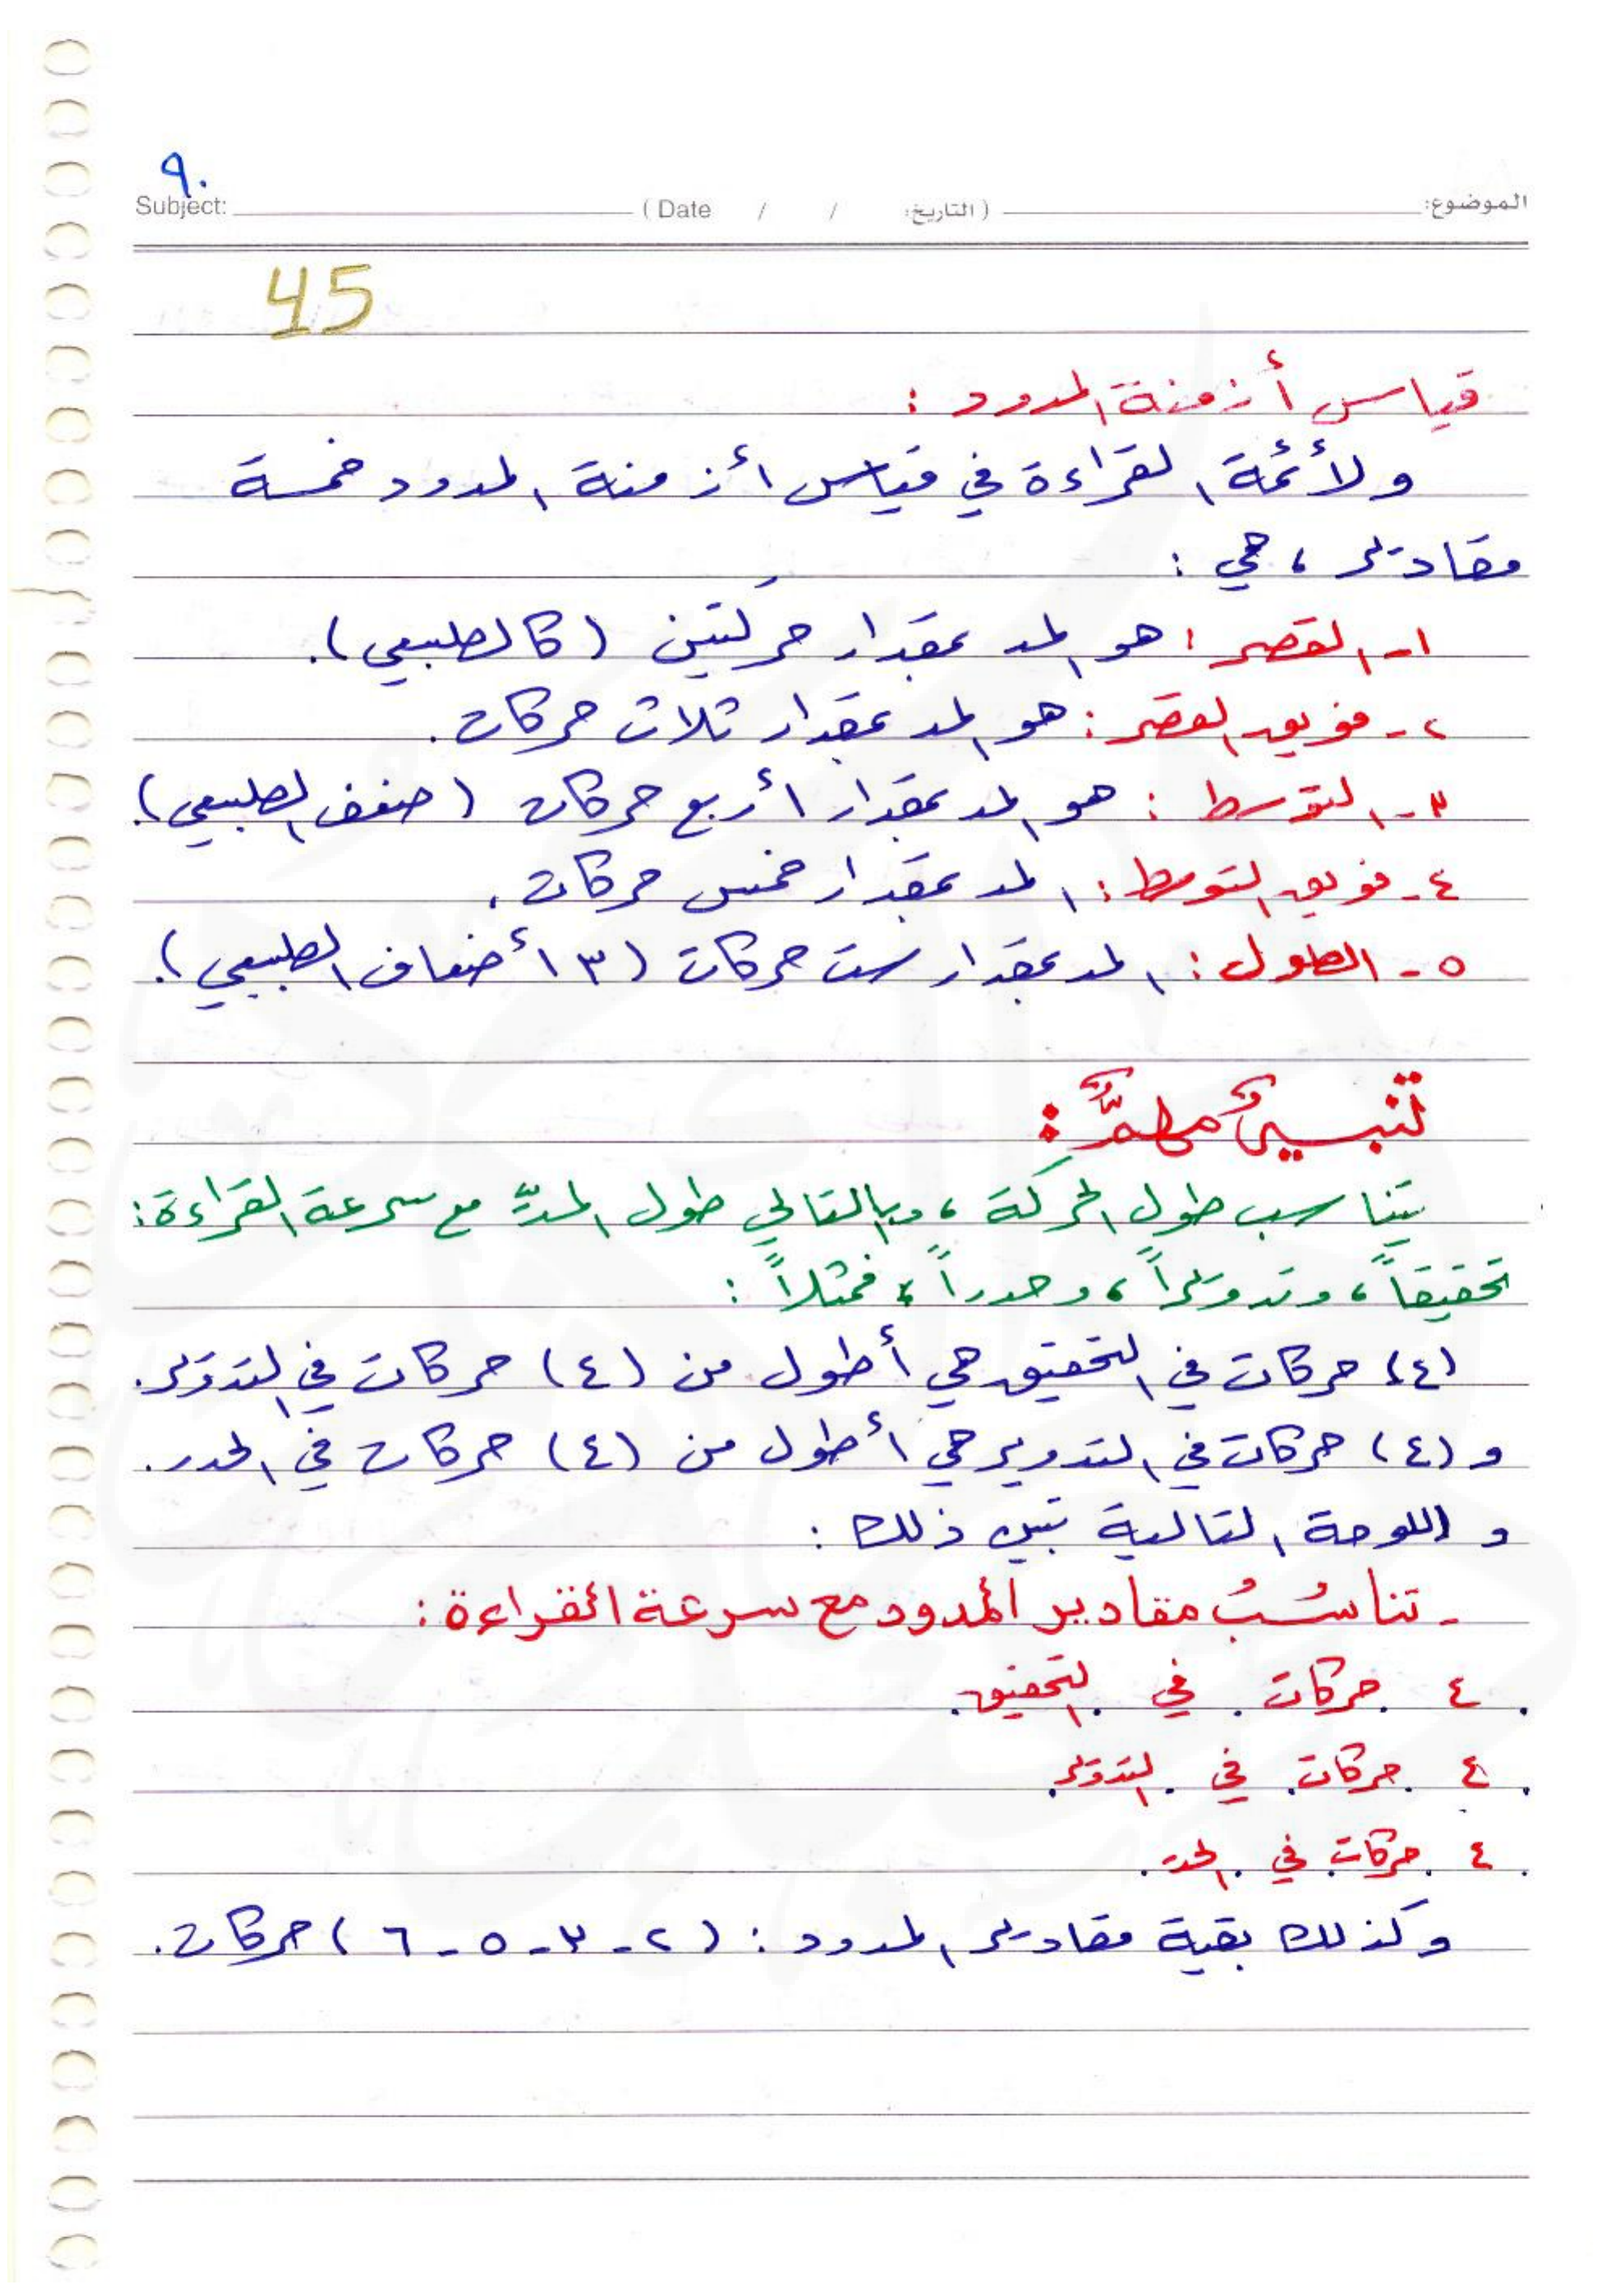 ٩٠
Subject: ( Date / / التاريخ: ) الموضوع:
45
قياس أزمنة المدود :
ولأئمة القراءة في قياس أزمنة المدود خمسة
مقادير ، هي :
١- القصر : هو المد بمقدار حركتين (كالطبيعي).
٢- فويق القصر : هو المد بمقدار ثلاث حركات .
٣- التوسط : هو المد بمقدار أربع حركات (ضعف الطبيعي).
٤- فويق التوسط : المد بمقدار خمس حركات .
٥- الطول : المد بمقدار ست حركات (٣ أضعاف الطبيعي).
تنبيهٌ مهمٌّ :
يتناسب طول الحركة ، وبالتالي طول المدّ مع سرعة القراءة :
تحقيقاً ، وتدويراً ، وحدراً ، فمثلاً :
(٤) حركات في التحقيق هي أطول من (٤) حركات في التدوير .
و (٤) حركات في التدوير هي أطول من (٤) حركات في الحدر .
و اللوحة التالية تبين ذلك :
- تناسُبُ مقادير المدود مع سرعة القراءة :
. ٤ حركات في التحقيق .
. ٤ حركات في التدوير .
. ٤ حركات في الحدر .
وكذلك بقية مقادير المدود : (٢ - ٣ - ٥ - ٦) حركات .